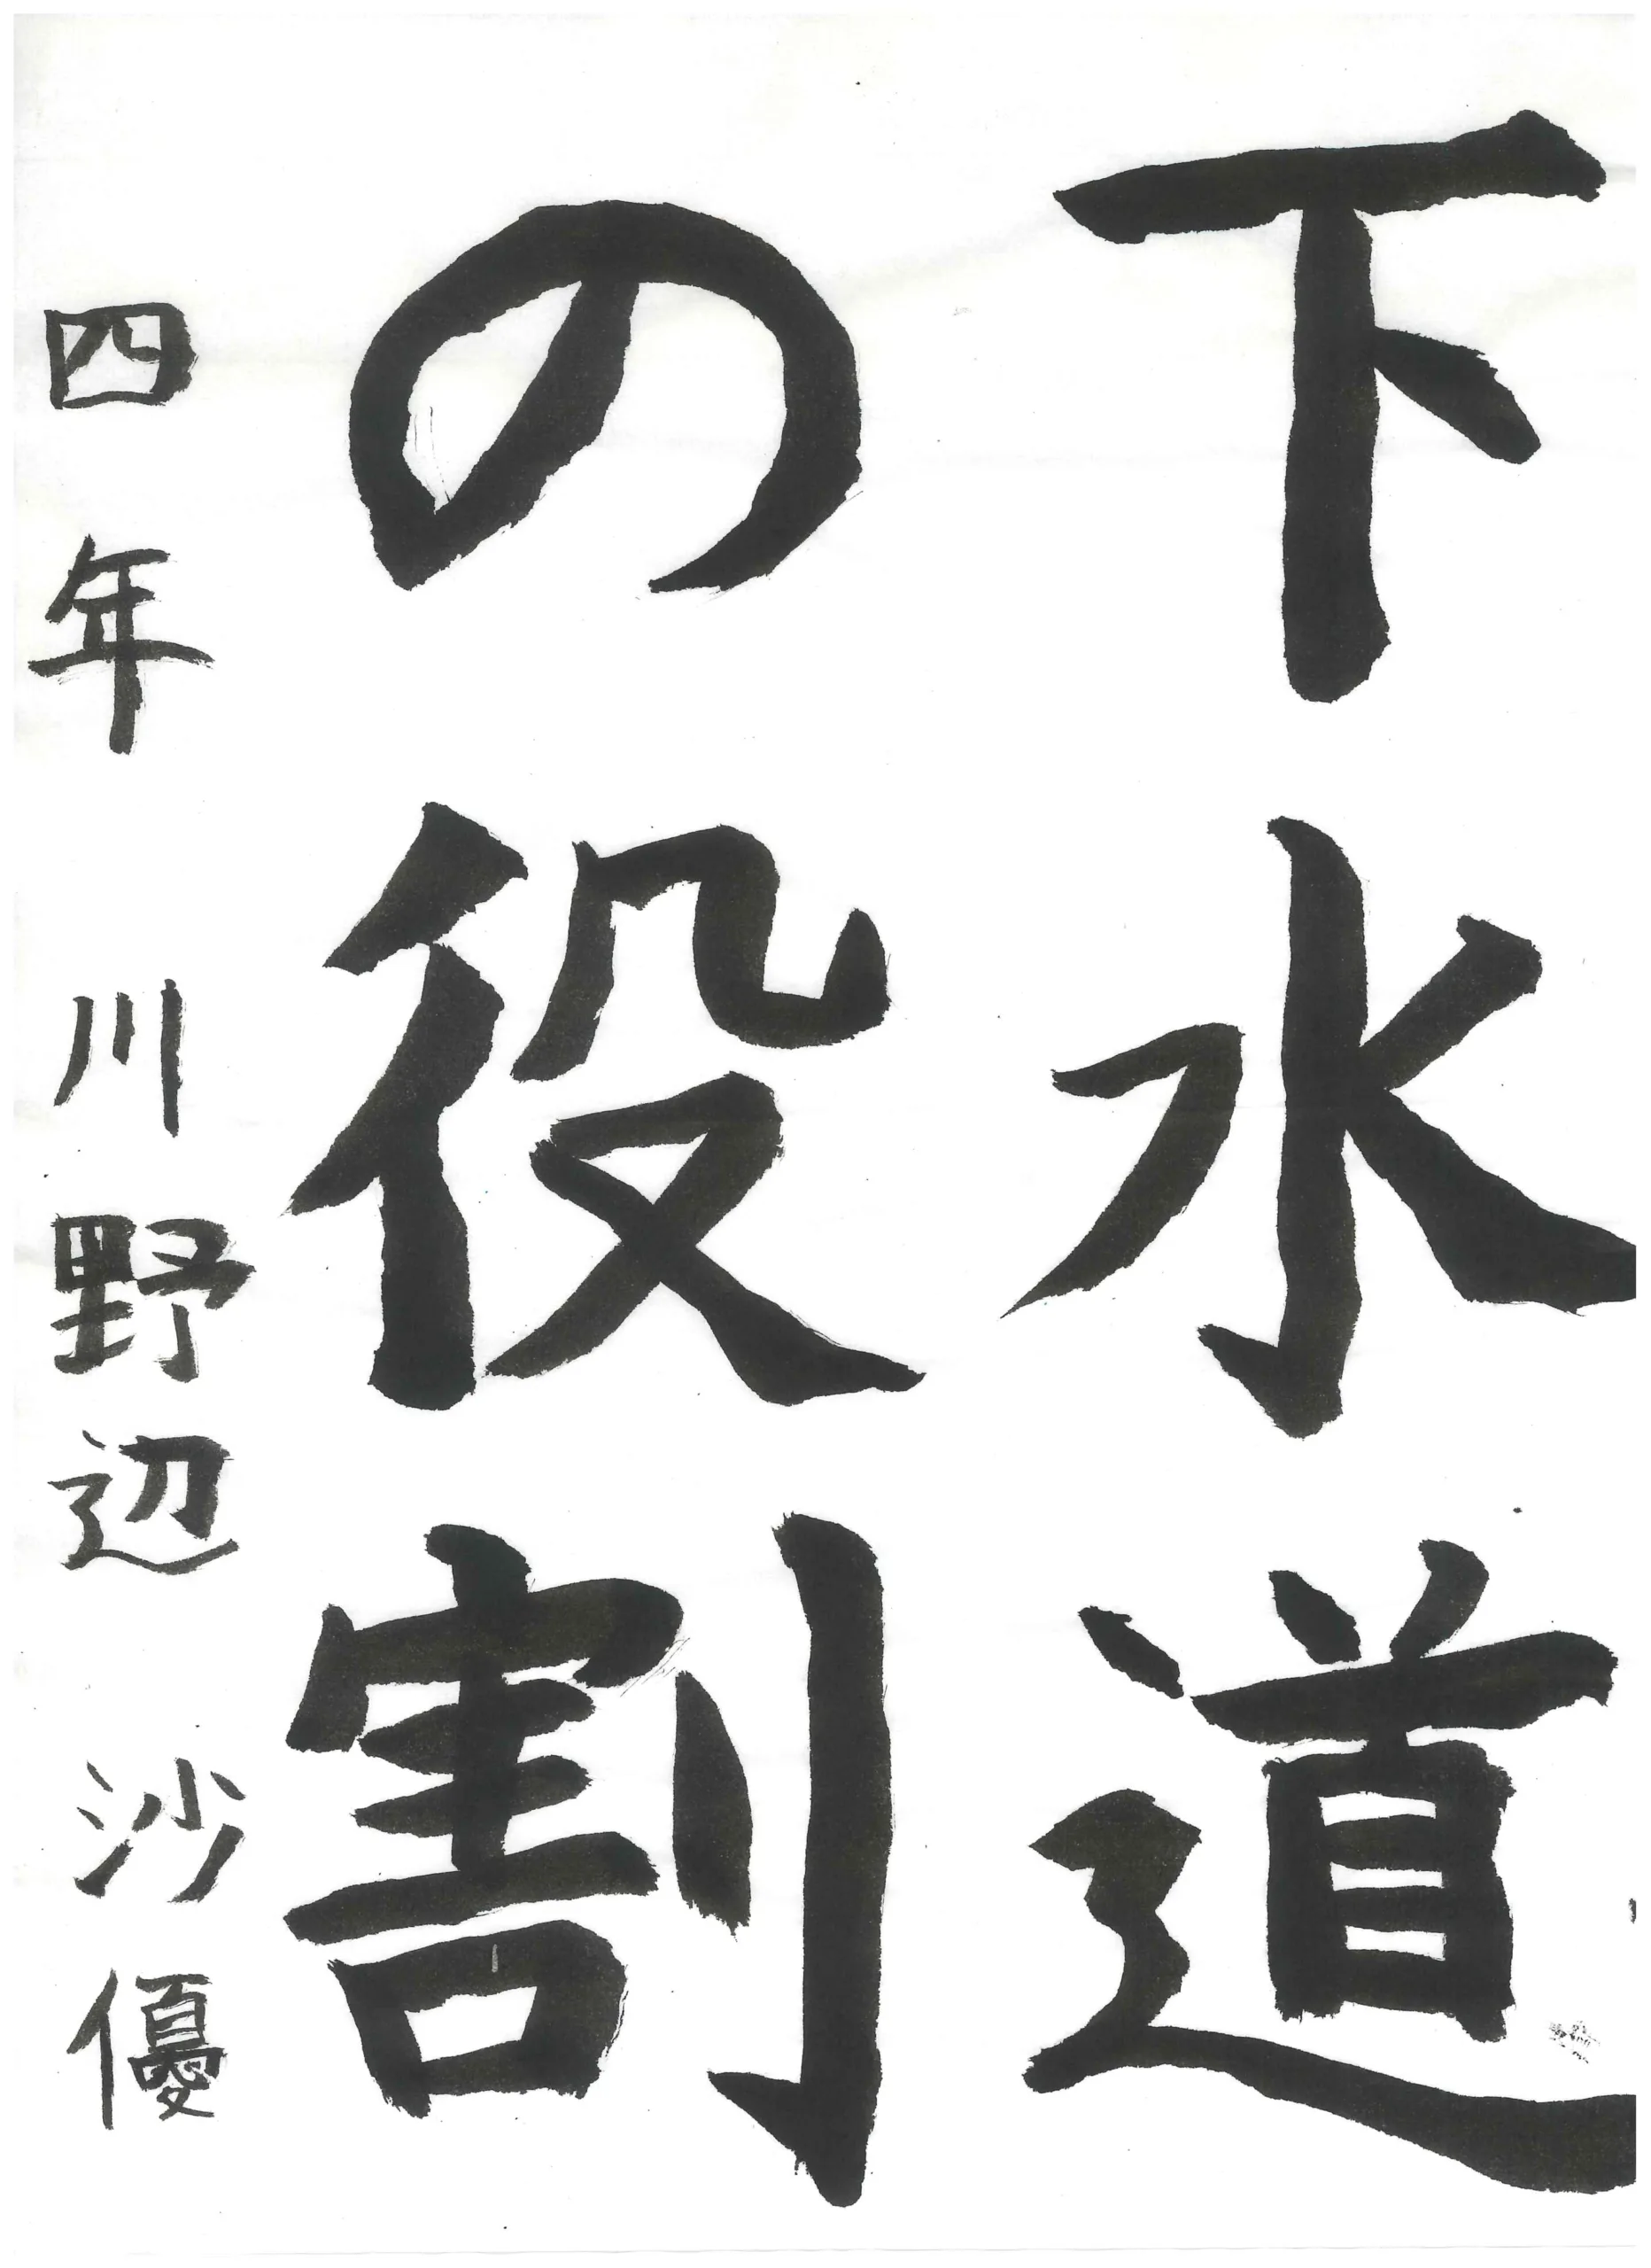 下水道
の役割
四年 川野辺 沙優